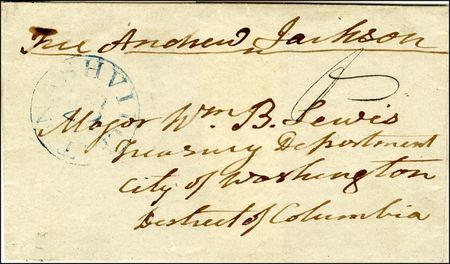 Free Andrew Jackson
NASHVILLE
Major Wm B. Lewis
Treasury Department
City of Washington
District of Columbia